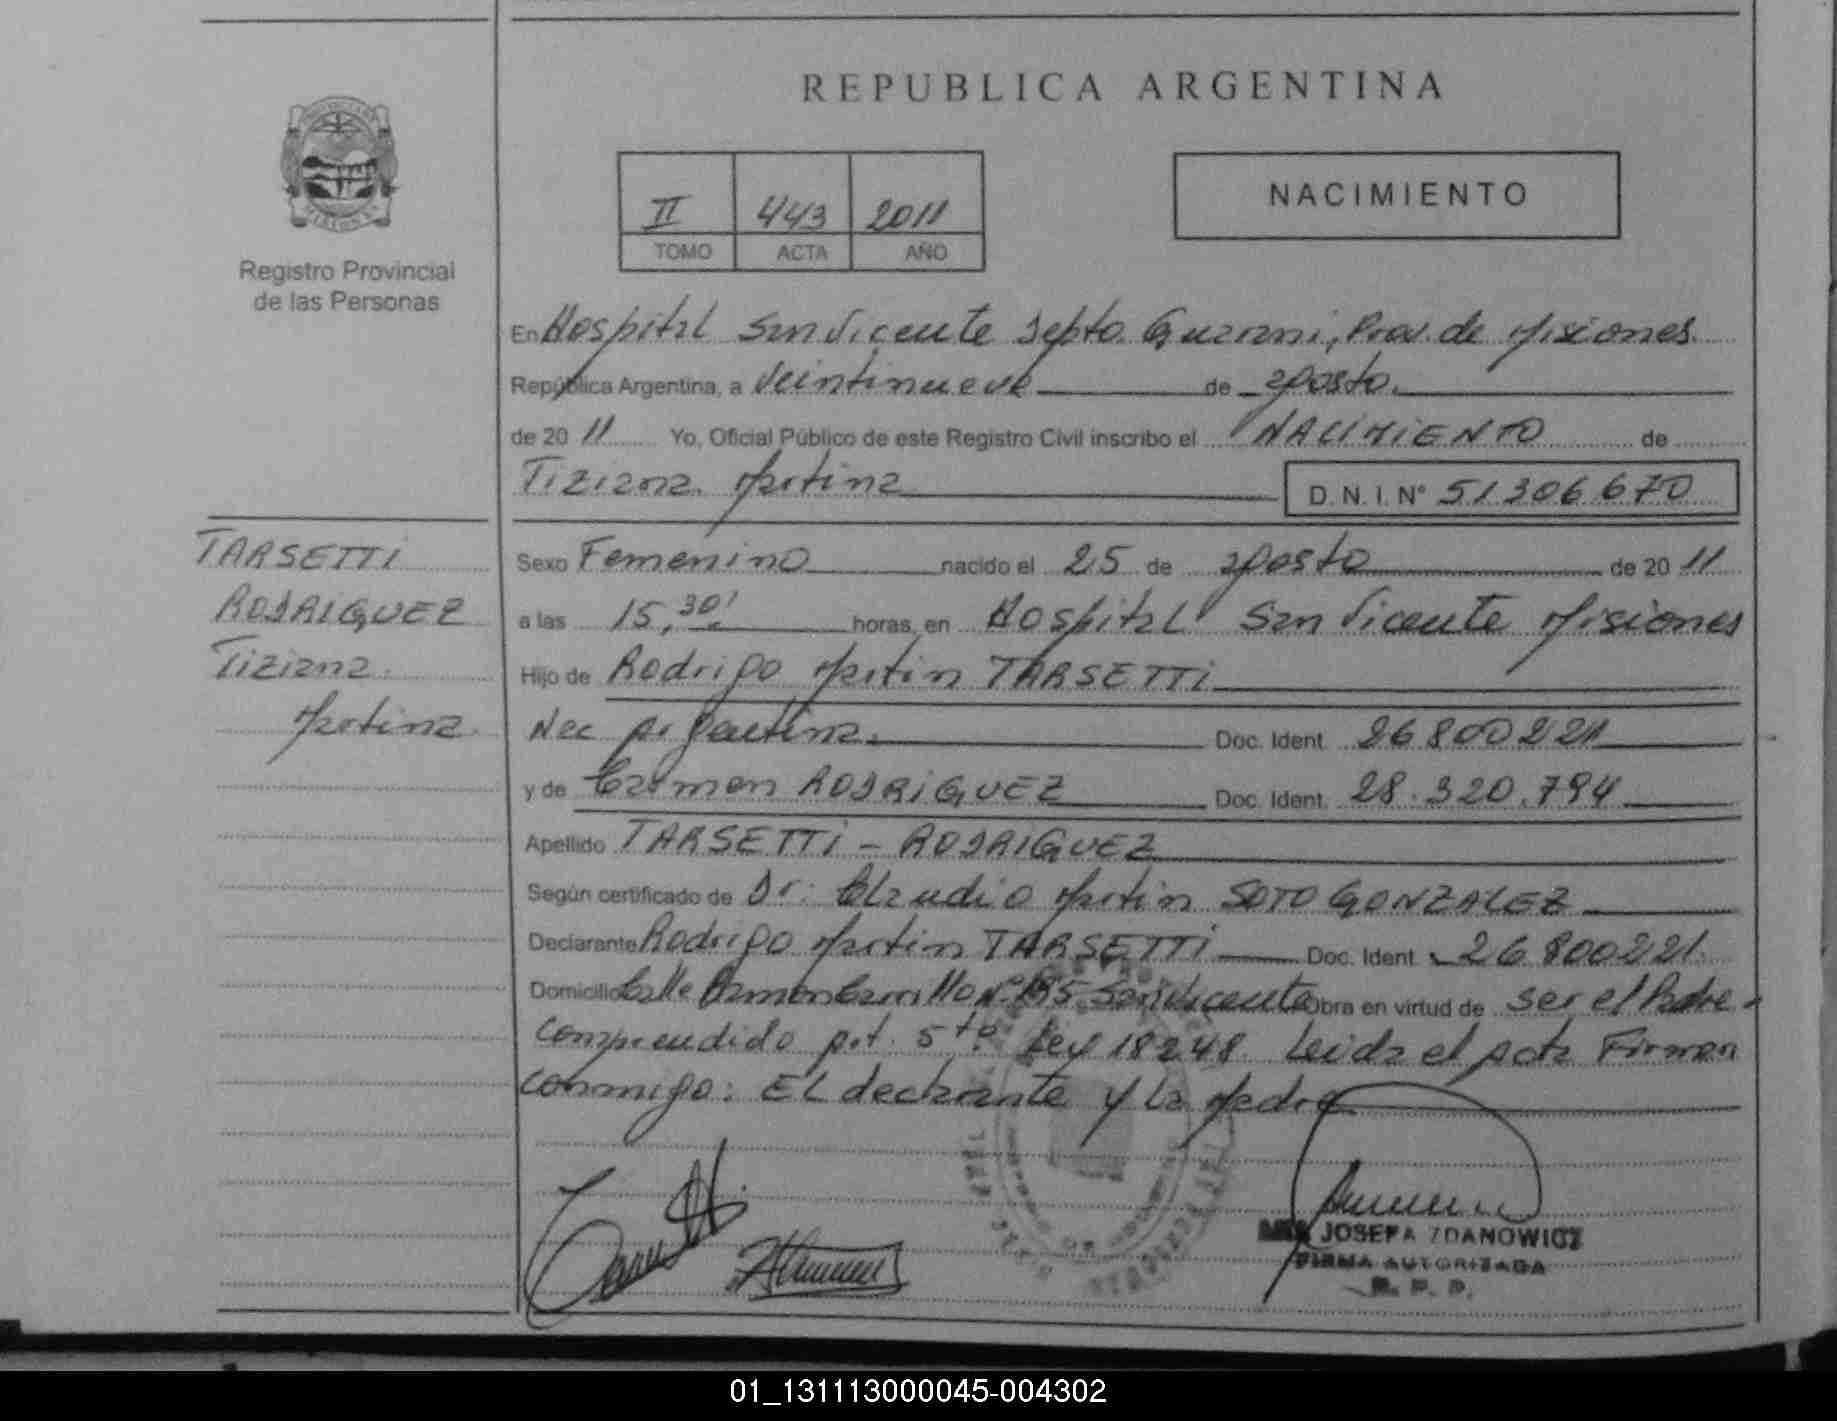 REPUBLICA ARGENTINA
NACIMIENTO
II 443 2011
TOMO ACTA AÑO
Registro Provincial
de las Personas
En Hospital San Vicente Depto. Guarani, Prov. de Misiones
República Argentina, a Veintinueve de agosto.
de 20 11 Yo, Oficial Público de este Registro Civil inscribo el NACIMIENTO de
Tiziana Martina D. N. I. N° 51306670
TARSETTI
RODRIGUEZ
Tiziana
Martina
Sexo Femenino nacido el 25 de agosto de 20 11
a las 15,30' horas, en Hospital San Vicente Misiones
Hijo de Rodrigo Martin TARSETTI
Nac Argentina. Doc. Ident. 26800221
y de Carmen RODRIGUEZ Doc. Ident. 28.320.794
Apellido TARSETTI - RODRIGUEZ
Según certificado de Dr: Claudio Martin SOTO GONZALEZ
Declarante Rodrigo Martin TARSETTI Doc. Ident. 26800221.
Domicilio Calle Ramon Carrillo N° 195 San Vicente Obra en virtud de ser el Padre-
Comprendido Art. 5to Ley 18248. Leida el Acta Firman
Conmigo: EL declarante y la Madre
JOSEFA ZDANOWICZ
FIRMA AUTORIZADA
R. P. P.
01_131113000045-004302